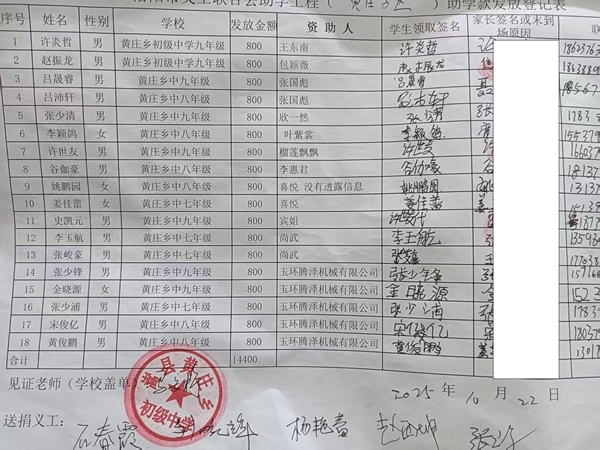 助学款发放登记表
序号 姓名 性别 学校 发放金额 资助人 学生领取签名 家长签名或未到场原因
1 许炎哲 男 黄庄乡初级中学九年级 800 王东南 许炎哲
2 赵振龙 男 黄庄乡初级中学九年级 800 包颖薇
3 吕晟睿 男 黄庄乡中九年级 800 张国彪 吕晟睿
4 吕沛轩 男 黄庄乡中八年级 800 张国彪
5 张少清 男 黄庄乡中九年级 800 欣一然
6 李颖鸽 女 黄庄乡中八年级 800 叶紫裳 李颖鸽
7 许世友 男 黄庄乡中九年级 800 榴莲飘飘 许世友
8 谷伽豪 男 黄庄乡中八年级 800 李惠君 谷伽豪
9 姚鹏园 女 黄庄乡中八年级 800 喜悦 没有透露信息 姚鹏园
10 姜佳蕾 女 黄庄乡中七年级 800 喜悦 姜佳蕾
11 史凯元 男 黄庄乡中八年级 800 宾姐
12 李玉航 男 黄庄乡中七年级 800 尚武 李玉航
13 张峻豪 男 黄庄乡中七年级 800 尚武
14 张少锋 男 黄庄乡中九年级 800 玉环腾泽机械有限公司 张少锋
15 金晓源 女 黄庄乡中八年级 800 玉环腾泽机械有限公司 金晓源
16 张少浦 男 黄庄乡中七年级 800 玉环腾泽机械有限公司 张少浦
17 宋俊亿 男 黄庄乡中八年级 800 玉环腾泽机械有限公司 宋俊亿
18 黄俊鹏 男 黄庄乡中八年级 800 玉环腾泽机械有限公司
合计 14400
见证老师（学校盖单）
县黄庄乡
初级中学
2025年10月22日
送捐义工： 石春霞 杨艳蕾